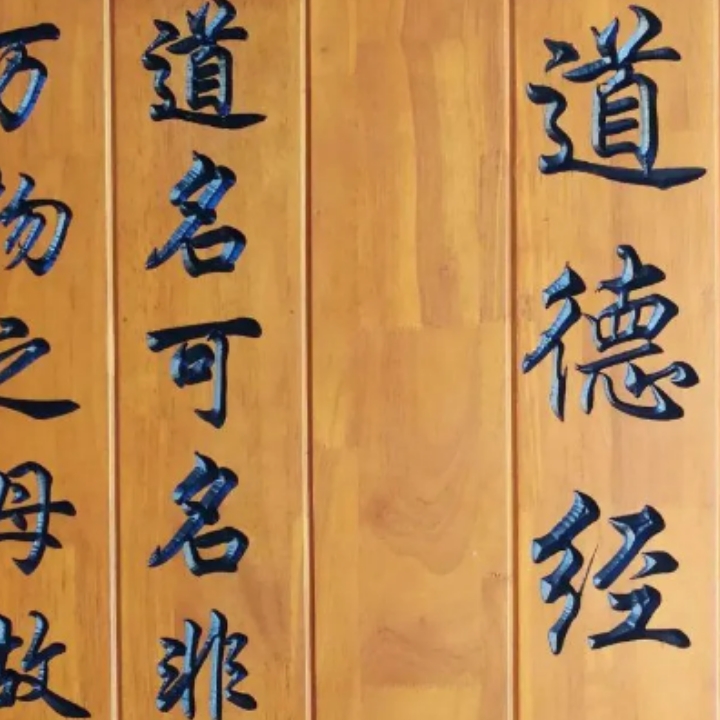 道德经
道名可名非
万物之母故